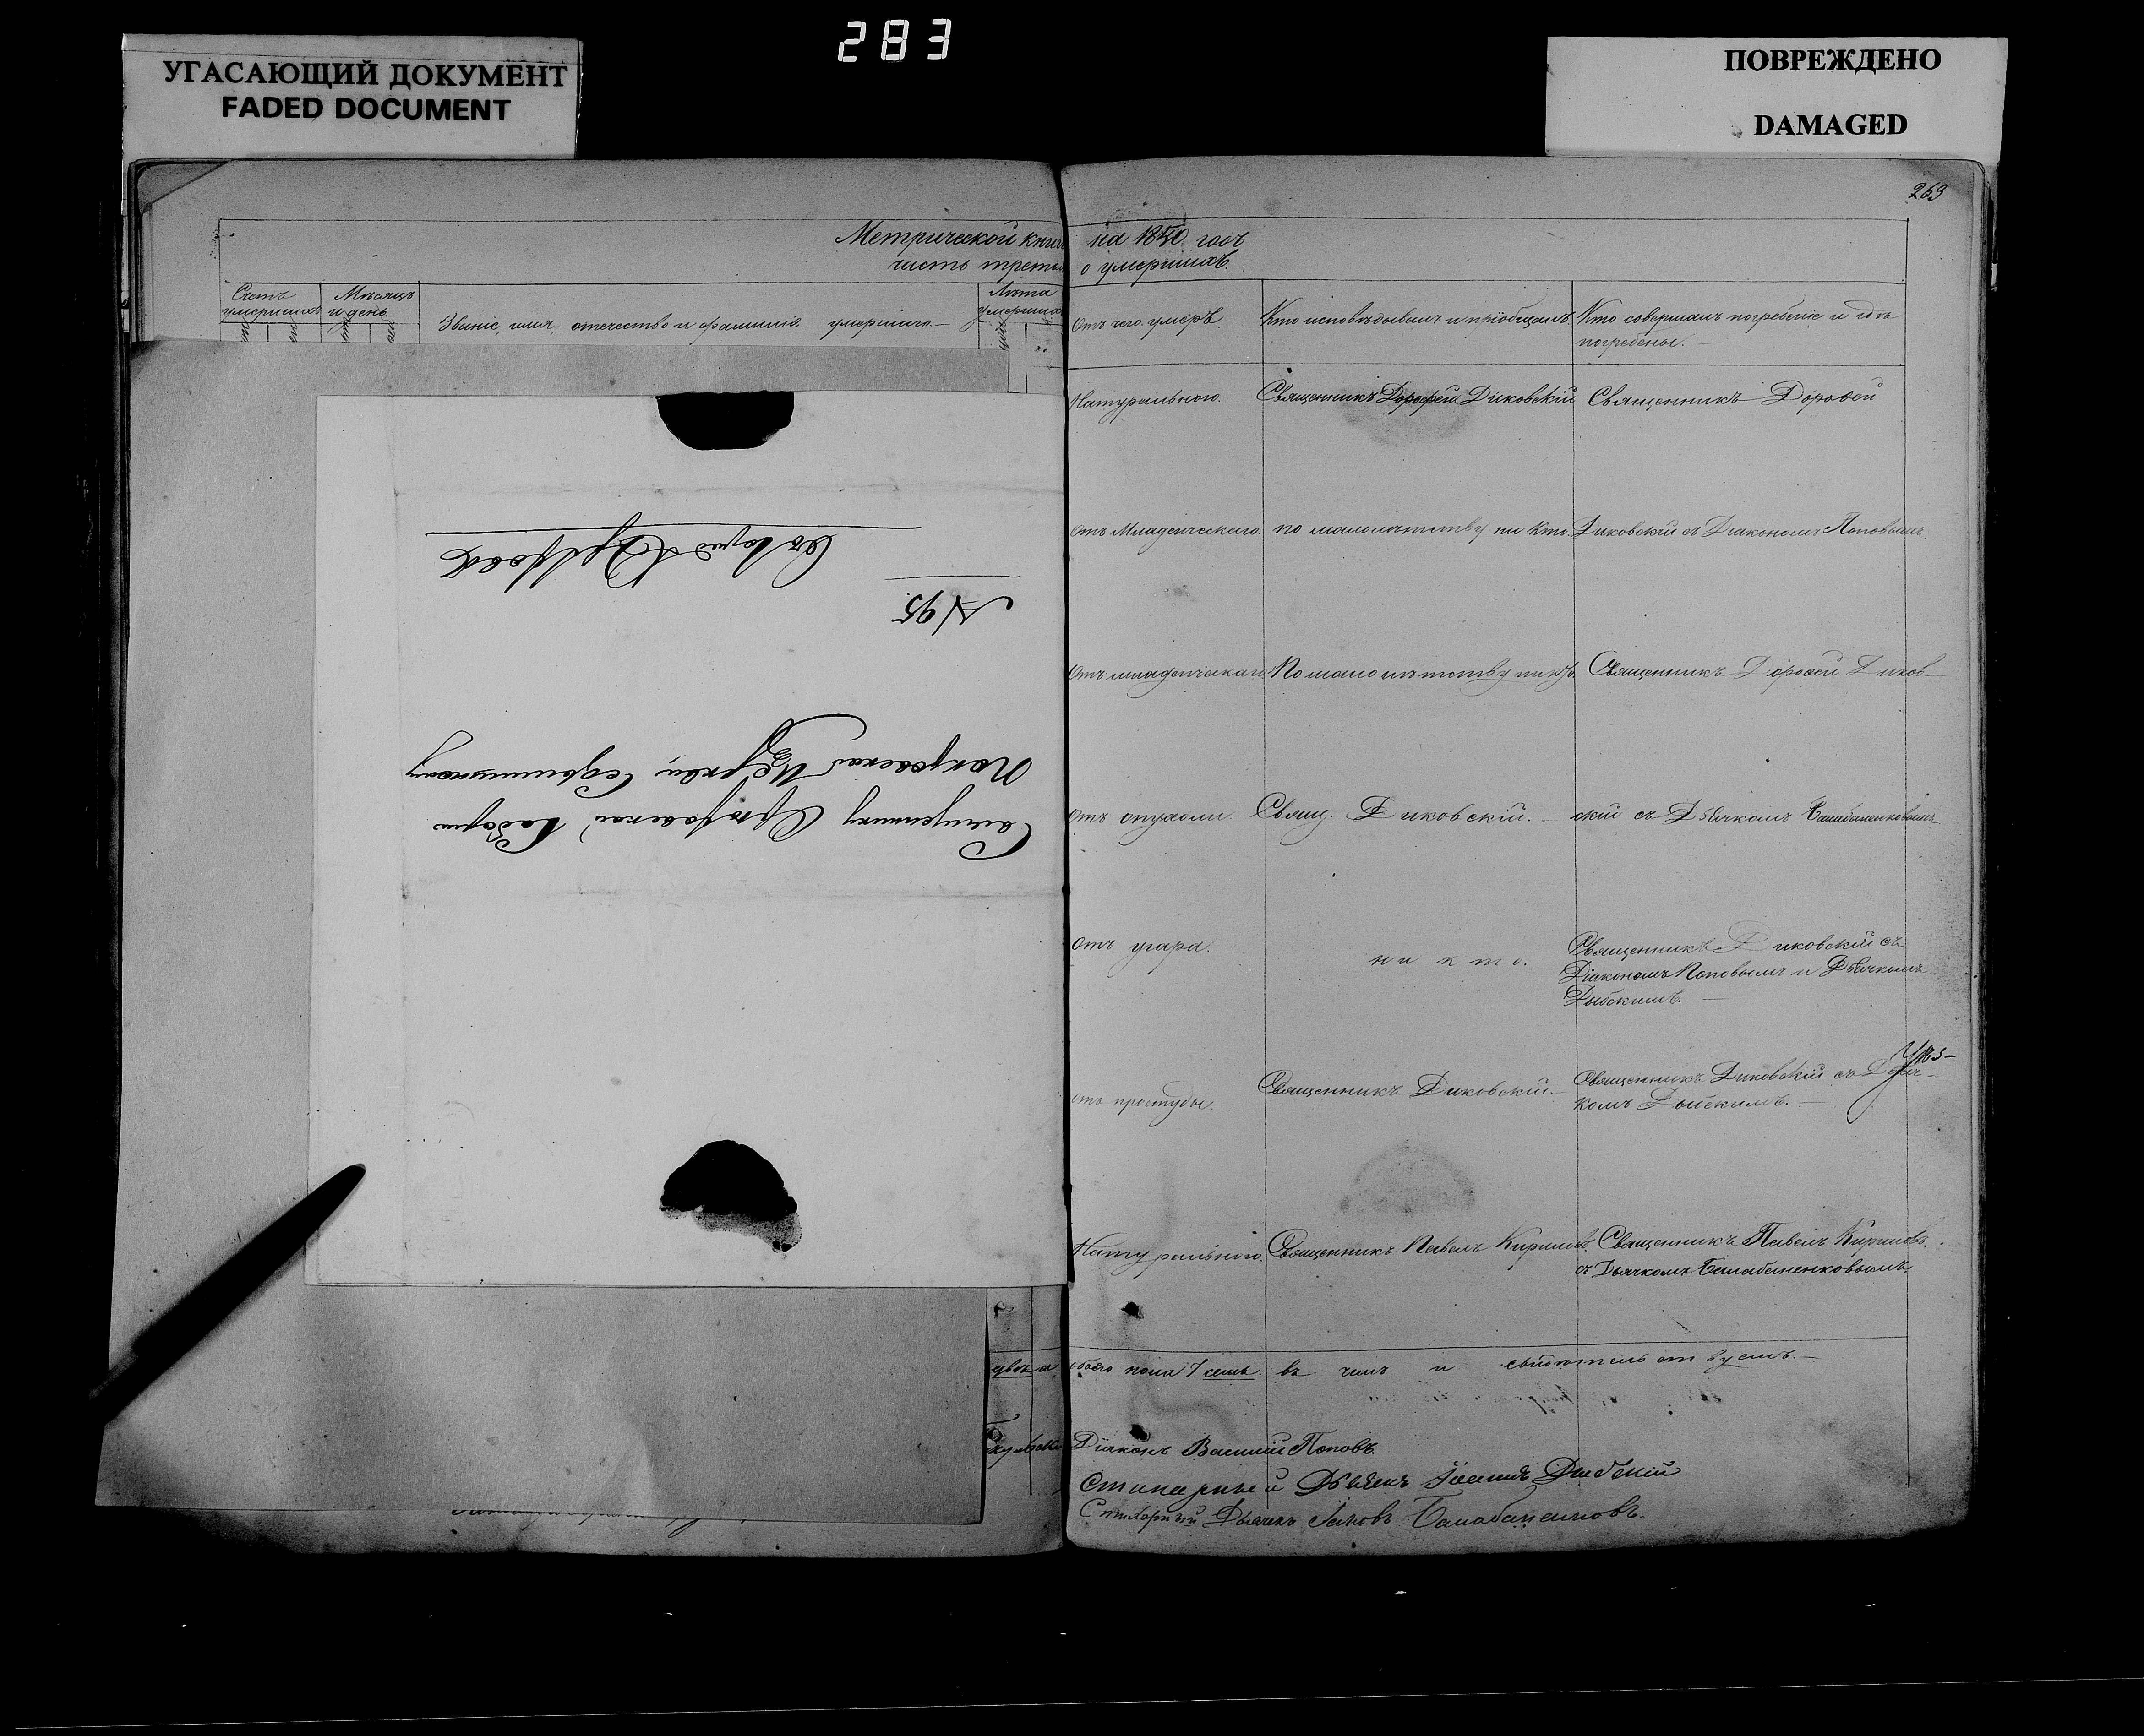 283
УГАСАЮЩИЙ ДОКУМЕНТ
FADED DOCUMENT
ПОВРЕЖДЕНО
DAMAGED
263
Метрической книги на 1850 годъ
часть третья о умершихъ.
Счетъ умершихъ
Мѣсяцъ и день
Званіе, имя, отечество и фамилія умершаго.
Лѣта умершихъ
Отъ чего умеръ.
Кто исповѣдывалъ и пріобщалъ.
Кто совершалъ погребеніе и гдѣ
погребены.
Натуральною. Священникъ Дорофей Диковскій Священникъ Дорофей
отъ Младенческаго. по малолѣтству ни кто. Диковскій съ Діакономъ Поповымъ
отъ младенческаго По малолѣтству Священникъ Дорофей Диков-
отъ опухоли. Свящ. Диковскій. скій съ Дьячкомъ
отъ угара. ни кто. Священникъ Диковскій съ
Діакономъ Поповымъ и Дьячкомъ
Дыбскимъ.
отъ простуды. Священникъ Диковскій. Священникъ Диковскій съ Дьяч-
комъ Дыбскимъ.
Натуральною. Священникъ Павелъ Кириловъ. Священникъ Павелъ Кириловъ
съ Дьячкомъ Балабаненковымъ.
два обоего пола 7 семь. въ чемъ и свидѣтельствуемъ.
Діаконъ Василій Поповъ.
Стихарный Дьячекъ Дыбскій
Стихарный Дьячекъ Іаковъ
Священнику
Покровской Церкви
№ 95.